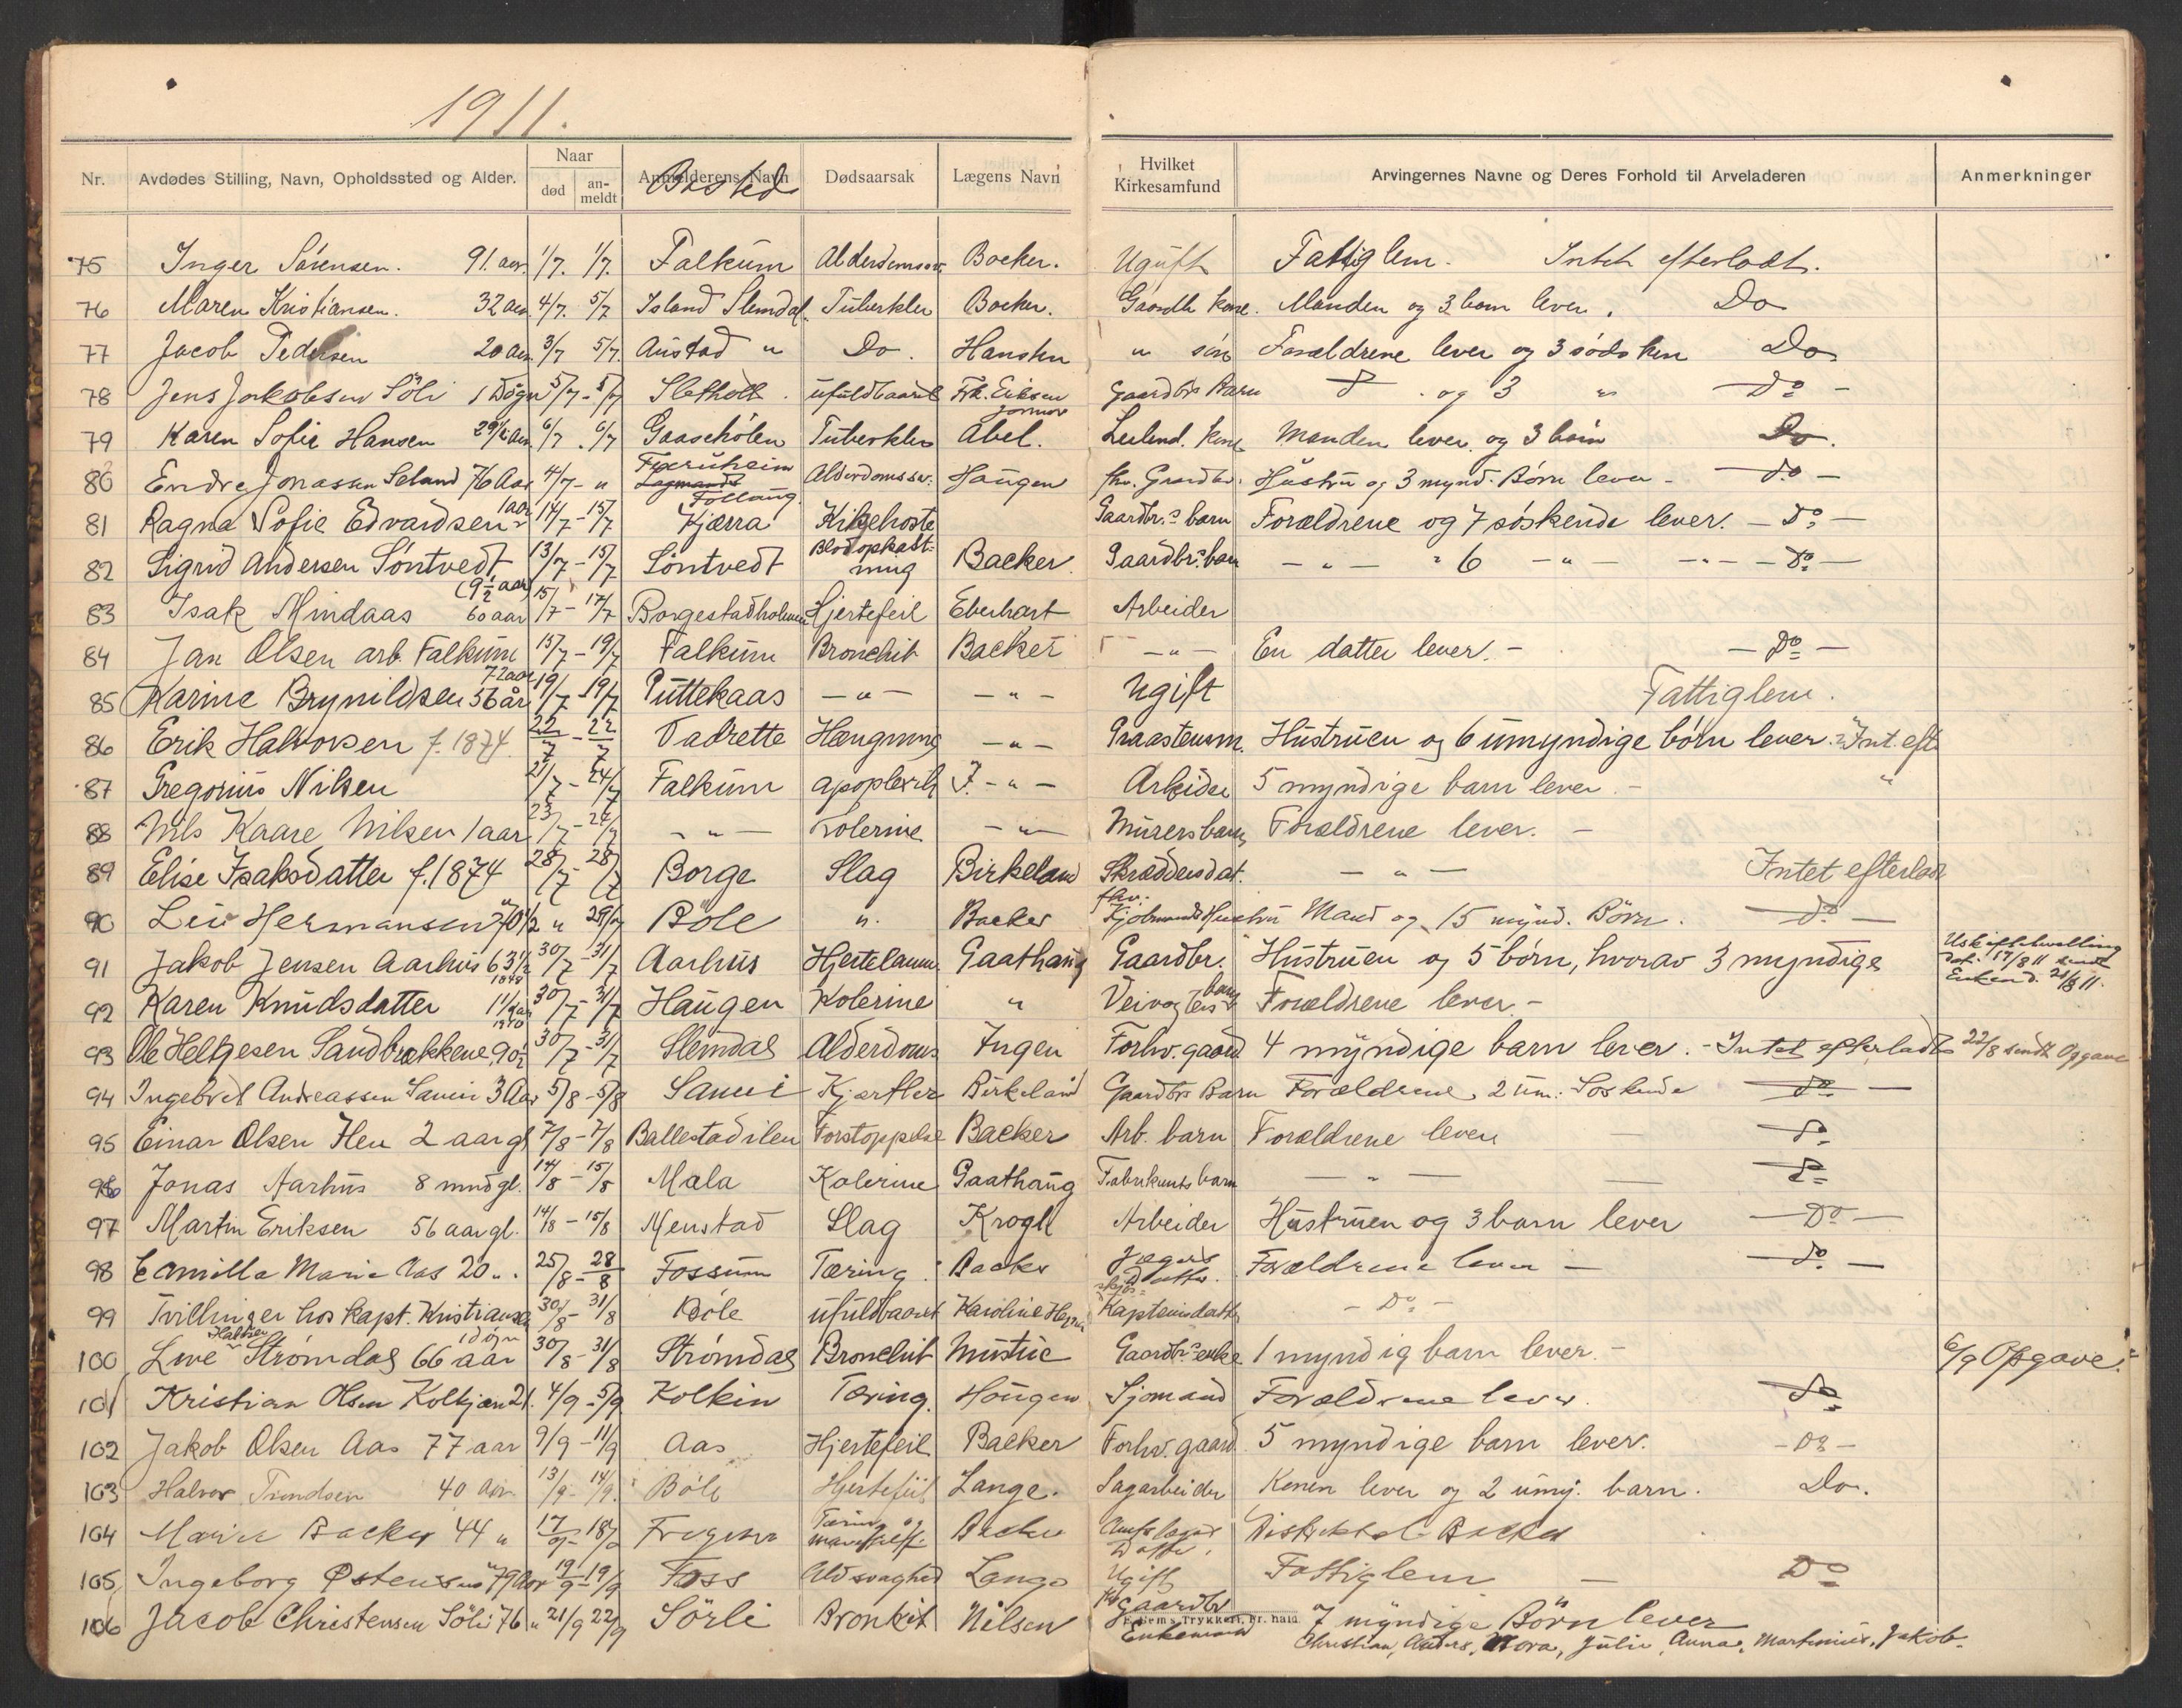 1911.
Nr. Avdødes Stilling, Navn, Opholdssted og Alder. Naar død an-meldt Anmelderens Navn Bosted Dødsaarsak Lægens Navn Hvilket Kirkesamfund Arvingernes Navne og Deres Forhold til Arveladeren Anmerkninger
75 Inger Sørensen. 91 aar 1/7. 1/7. Falkum Alderdomssv. Backer. Ugift Fattiglem. Intet efterladt.
76 Maren Kristiansen. 32 aar 4/7. 5/7 Island Slemdal. Tuberkler Backer. Gaardb kone. Manden og 3 barn lever. Do
77 Jacob Pedersen 20 aar 3/7 5/7. Austad " Do. Hansen " søn Forældrene lever og 3 sødsken Do
78 Jens Jakobsen Söli 1 Døgn 5/7 - 5/7 Sletholt. ufuldbaaret Frk. Eriksen Jormor Gaardbrs Barn do og 3 " do -
79 Karen Sofie Hansen 29 1/2 aar 6/7. 6/7 Gaasehölen Tuberkler Abel. Leilend. kone Manden lever og 3 barn Do.
80 Endre Jonassen Seland 76 Aar 4/7 - " Fjæruheim Follaug Alderdomssv. Haugen fhv. Gaardbr. Hustru og 3 mynd. Børn lever - do -
81 Ragna Sofie Edvardsen 1 aar 14/7 - 15/7 Kjærra Kikhoste Gaardbr.s barn Forældrene og 7 søskende lever. - Do -
82 Sigrid Andersen Söntvedt (9 1/2 aar) 13/7 - 15/7 Söntvedt Blodopkast-ning Backer Gaardbr.s barn - " - " 6 - " - - " - - Do -
83 Isak Mindaas 60 aar 15/7 - 17/7 Borgestadholmen Hjertefeil Eberhart Arbeider
84 Jan Olsen arb. Falkum 72 aar 15/7 - 19/7 Falkum Bronchit Backer - " - En datter lever. - - Do -
85 Karine Brynildsen 56 år 19/7 - 19/7 Puttekaas - " - - " - Ugift Fattiglem.
86 Erik Halvorsen f. 1874 22/7 - 22/7 Vadrette Hængning - " - Graastensm. Hustruen og 6 umyndige börn lever. Int. eft
87 Gregorius Nilsen 21/7 - 24/7 Falkum apoplexih J. - " - Arbeider 5 myndige barn lever. - "
88 Nils Kaare Nilsen 1 aar 23/7 - 24/7 - " - Kolerine - " - Murers barn Forældrene lever. -
89 Elise Isaksdatter f. 1874 28/7 28/7 Borge Slag Birkeland Skræddersdat. - " - Intet efterladt
90 Liv Hermansen 70 1/2 " 29/7 Böle ". Backer fhv. Sjömands Hustru Mand og 15 mynd. Børn. do -
91 Jakob Jensen Aarhus 63 1/2 30/7 - 31/7 Aarhus Hjertelamm. Gaathaug Gaardbr. Hustruen og 5 börn, hvorav 3 myndige Uskiftebevilling dat. 17/8 11 sendt Enken d. 21/8 11.
1848
92 Karen Knudsdatter 1 1/2 aar 30/7 - 31/7 Haugen Kolerine " barn Forældrene lever -
1910
93 Ole Helgesen Sandbrækkene, 90 1/2 30/7 - 31/7 Slemdal Alderdoms Ingen Forhv. gaard 4 myndige barn lever. - Intet efterladt 22/8 sendt Opgave
94 Ingebret Andreassen Sanni 3 Aar 5/8 - 5/8 Sanni Kjertler Birkeland Gaardbrs Barn Forældrene, 2 um. Söskende do -
95 Einar Olsen Hen 2 aar gl 7/8 - 7/8 Ballestadilen Forstoppelse Backer Arb. barn Forældrene lever - do
96 Jonas Aarhus 8 mnd gl. 14/8 - 15/8 Mæla Kolerine Gaathaug Fabrikants barn - " - - do
97 Martin Eriksen 56 aar gl. 14/8 - 15/8 Menstad Slag Krogh Arbeider Hustruen og 3 barn lever - Do -
98 Camilla Marie Aas 20 " . 25/8 - 28/8 Fossum Tæring. Backer Jægers datter. Forældrene lever - - do -
99 Tvillinger hos Kapt. Kristiansen 1 døgn 30/8 - 31/8 Böle ufuldbaaret Karoline skibs- Kapteinsdatte - Do -
100 Live Halvsen Strømdal 66 aar 30/8 - 31/8 Strømdal Bronchit Mustue Gaardbr.s enke 1 myndig barn lever. - 6/9 Opgave.
101 Kristian Olsen Kolkjøn 21. 4/9 - 5/9 Kolkin Tæring. Hougen Sjømand Forældrene lever. do
102 Jakob Olsen Aas 77 aar 9/9 - 11/9 Aas Hjertefeil Backer Forhv. gaard 5 myndige barn lever. - Do -
103 Halvor Trondsen 40 Aar 13/9 - 14/9. Böle Hjertefeil Lange. Sagarbeider Konen lever og 2 umy. barn. Do.
104 Marie Backer 44 " 17/9 - 18/9 Tæring og Backer Amtslæge Datter. Distriktsl. Backer
105 Ingeborg Østensen 79 Aar 19/9 - 19/9 Foss Aldsvaghed Lange Ugift Fattiglem - Do
106 Jacob Christensen Söli 76 " 21/9 22/9 Sörli Bronkit Nilsen Gaardbr Enkemand 7 myndige Børn lever
Christian, Anders, Nora, Julie, Anna, Martinius, Jakob.